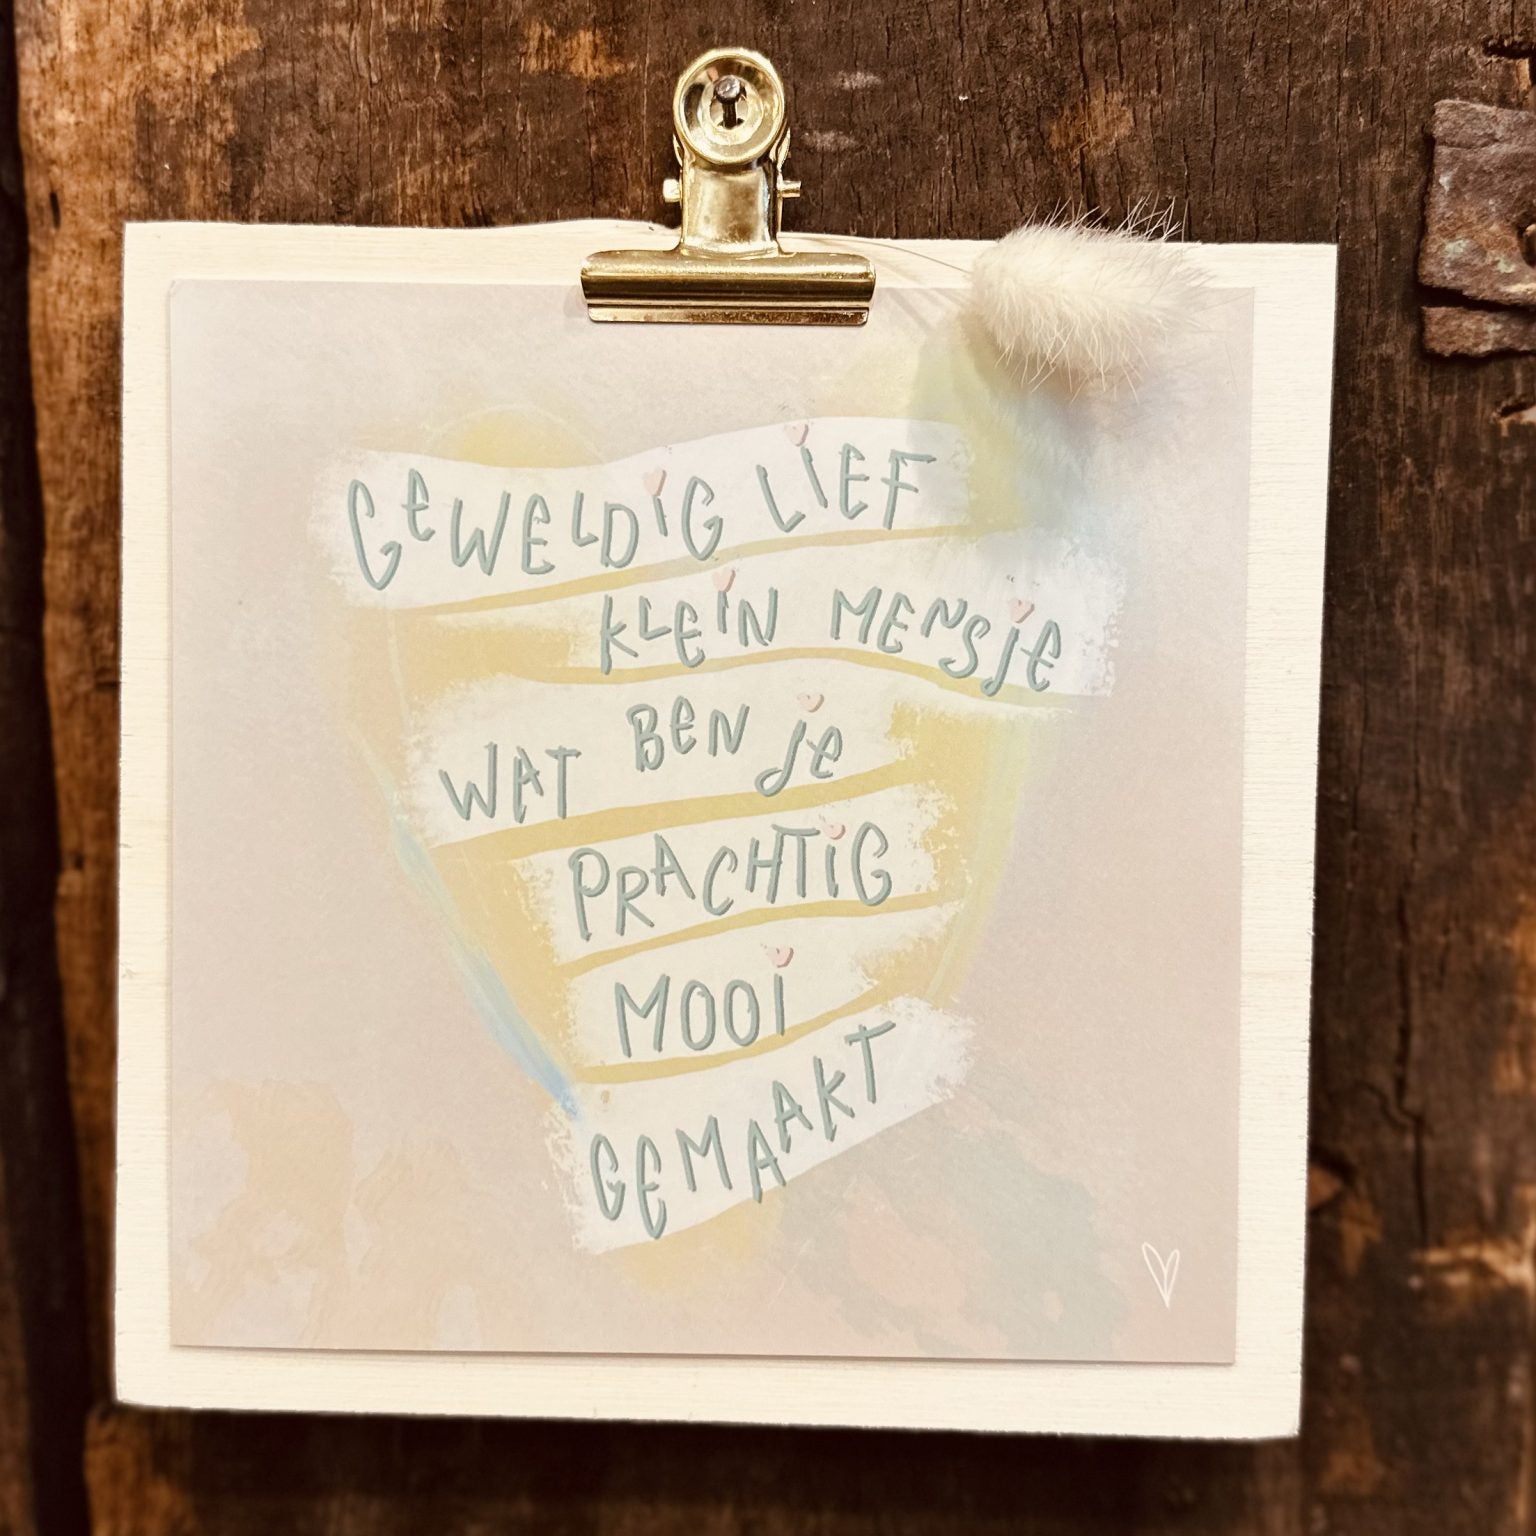 GEWELDIG LIEF
KLEIN MENSJE
WAT BEN JE
PRACHTIG
MOOI
GEMAAKT